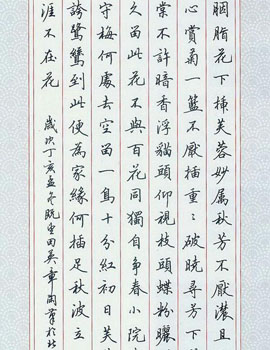 胭脂花下插芙蓉妙属秋芳不厭濃且
心賞菊一籃不厭插重重破晓尋芳下
棠不許暗香浮貓頭仰視枝頭蝶粉曬
久留此花不與百花同獨自爭春小院
守梅何處去空留一鳥十分紅初日芙
誇鷺鷥到此便為家緣何插足秋波立
涯不在花
歲次丁亥孟冬既望田英章